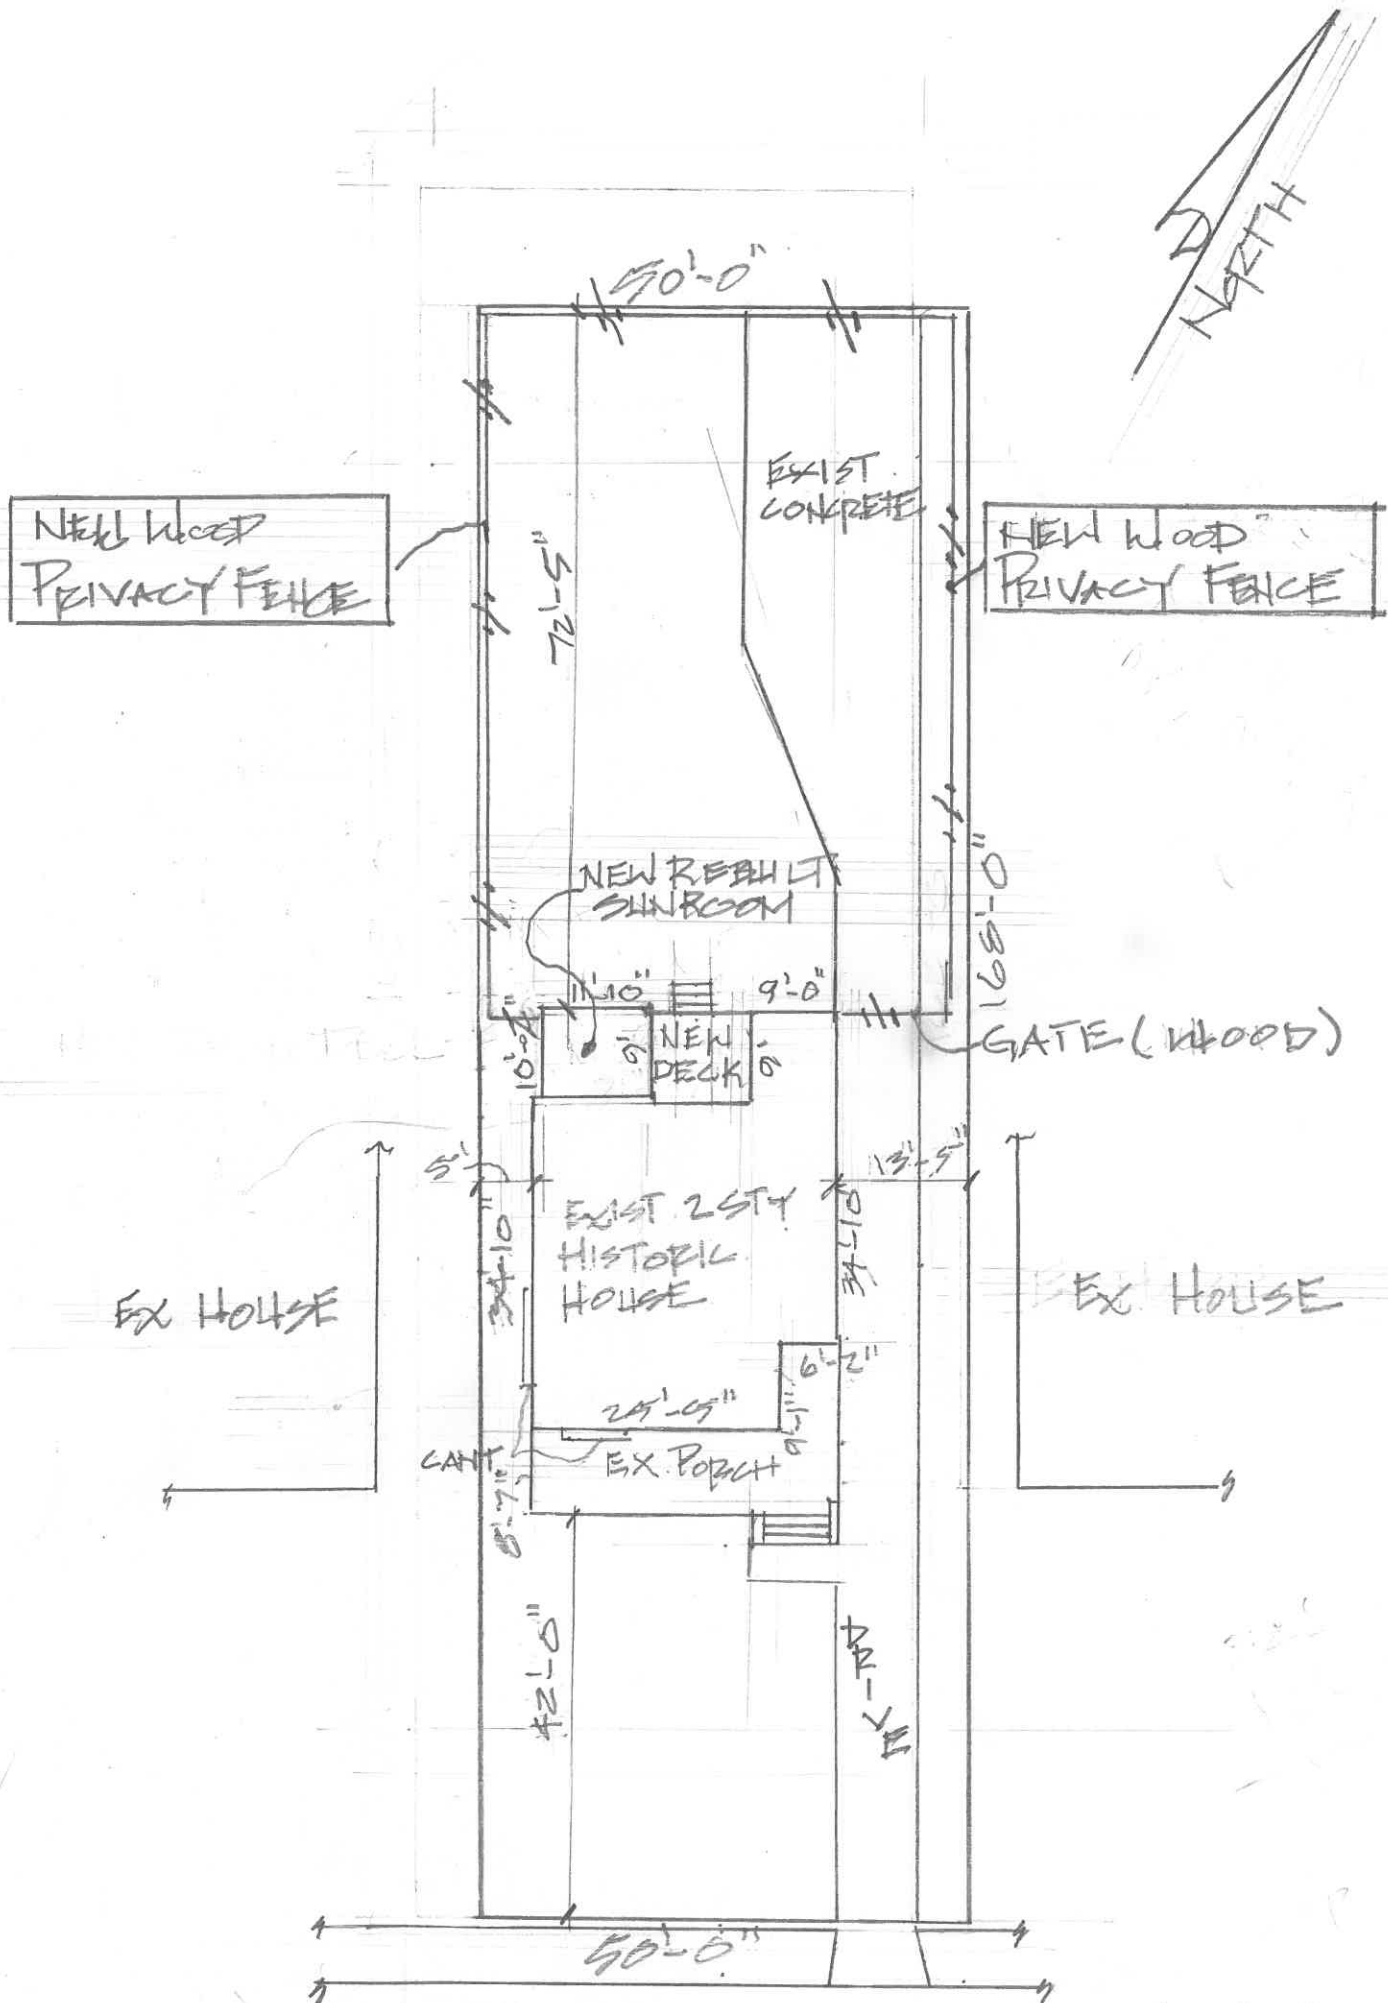 NORTH
50'-0"
EXIST
CONCRETE
NEW WOOD
PRIVACY FENCE
NEW WOOD
PRIVACY FENCE
72'-5"
NEW REBUILT
SUNROOM
168'-0"
11'-10"
9'-0"
10'-2"
9'
NEW
DECK
9'
GATE (WOOD)
5'
13'-5"
34'-10"
EXIST 2 STY
HISTORIC
HOUSE
34'-10"
EX HOUSE
EX HOUSE
6'-2"
25'-5"
9'-1"
CANT
EX. PORCH
8'-7"
42'-0"
DRIVE
50'-0"